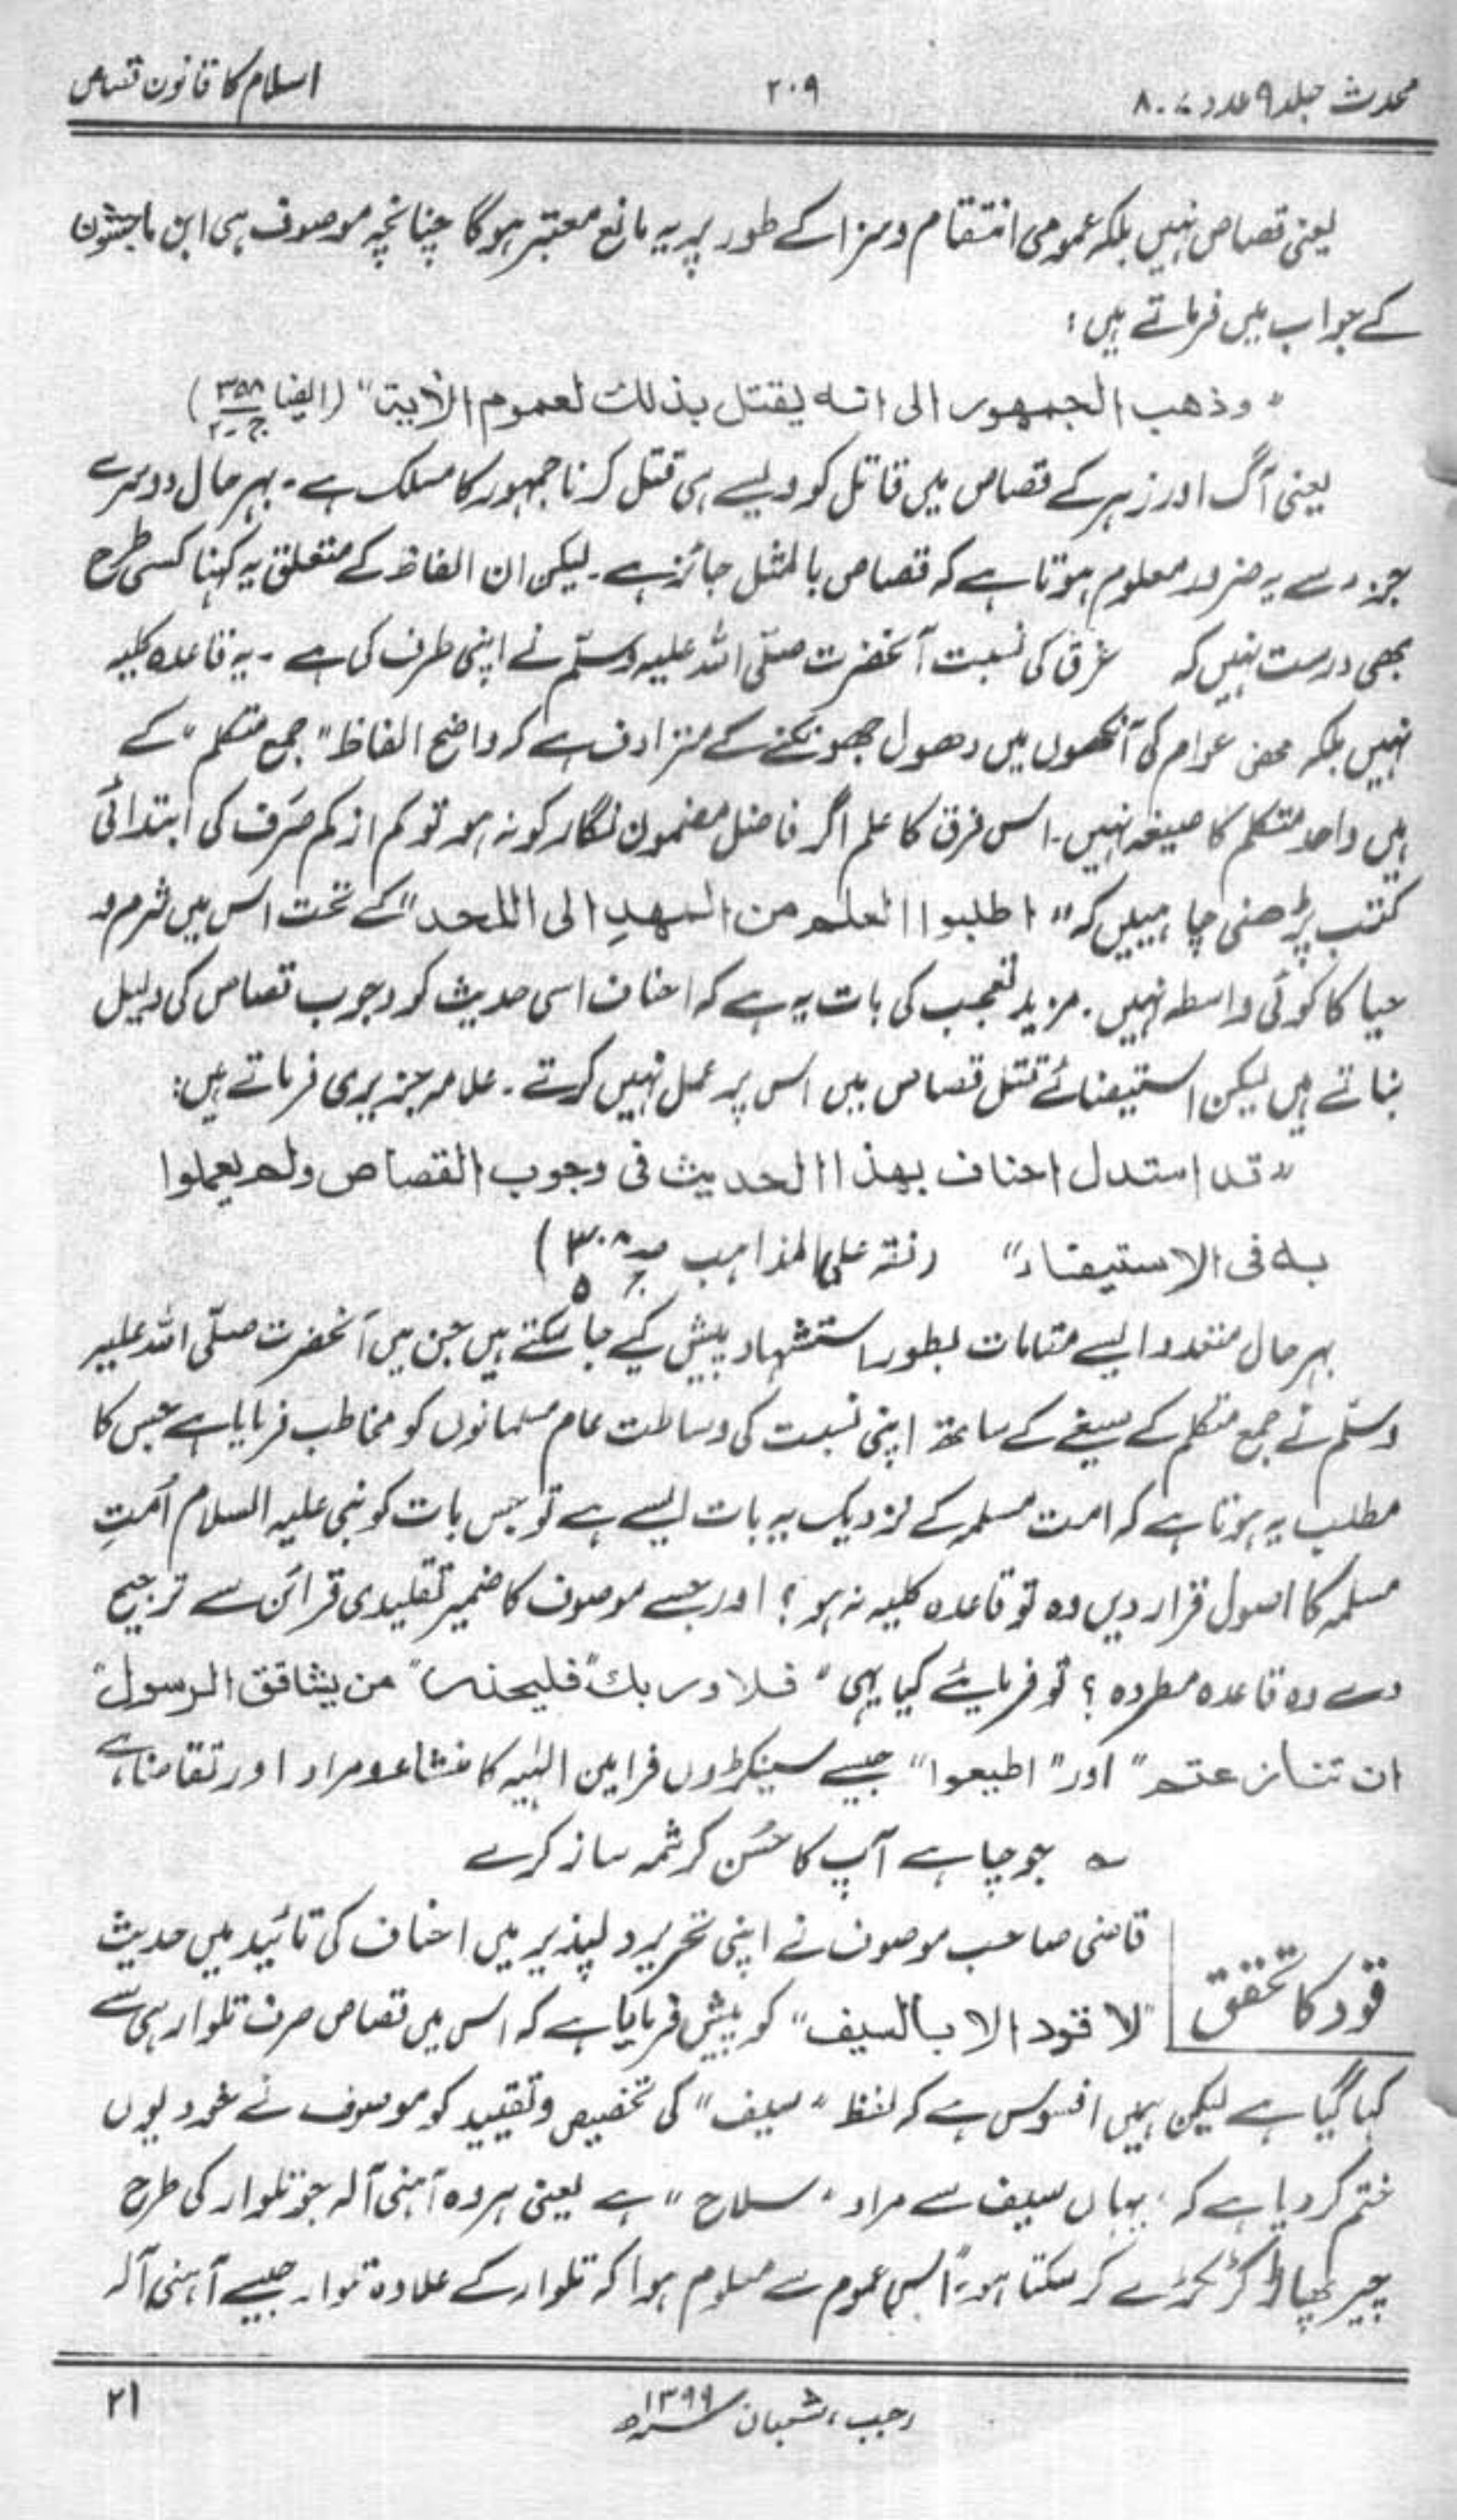 محدث جلد ۹ عدد ۷۔۸
۲۰۹
اسلام کا قانون قصاص
یعنی قصاص نہیں بلکہ عمومی انتقام وسزا کے طور پر یہ مانع معتبر ہوگا چنانچہ موصوف ہی ابن ماجشون
کے جواب میں فرماتے ہیں:
"وذهب الجمهور الى انه يقتل بذلك لعموم الآية" (ایضا ۳۵۸ ج۔۲)
یعنی آگ اور زہر کے قصاص میں قاتل کو ویسے ہی قتل کرنا جمہور کا مسلک ہے۔ بہرحال دوسرے
جزء سے یہ ضرور معلوم ہوتا ہے کہ قصاص بالمثل جائز ہے۔ لیکن ان الفاظ کے متعلق یہ کہنا کسی طرح
بھی درست نہیں کہ غرق کی نسبت آنحضرت صلّی اللہ علیہ وسلّم نے اپنی طرف کی ہے۔ یہ قاعدہ کلیہ
نہیں بلکہ محض عوام کی آنکھوں میں دھول جھونکنے کے مترادف ہے کہ واضح الفاظ "جمع متکلم" کے
ہیں واحد متکلم کا صیغہ نہیں۔ اس فرق کا علم اگر فاضل مضمون نگار کو نہ ہو تو کم از کم صَرف کی ابتدائی
کتب پڑھنی چاہییں کہ "اطلبوا العلم من المهدِ الى اللحد" کے تحت اس میں شرم و
حیا کا کوئی واسطہ نہیں۔ مزید تعجب کی بات یہ ہے کہ احناف اسی حدیث کو وجوب قصاص کی دلیل
بناتے ہیں لیکن استیفائے قتل قصاص میں اس پر عمل نہیں کرتے۔ علامہ جزیری فرماتے ہیں:
"قد استدل احناف بهذا الحديث فى وجوب القصاص ولم يعملوا
به فى الاستيفاء" (فقہ علی المذاہب صہ ۳۰۸ ج ۵)
بہرحال متعدد ایسے مقامات بطور استشہاد پیش کیے جا سکتے ہیں جن میں آنحضرت صلّی اللہ علیہ
وسلّم نے جمع متکلم کے صیغے کے ساتھ اپنی نسبت کی وساطت عام مسلمانوں کو مخاطب فرمایا ہے جس کا
مطلب یہ ہوتا ہے کہ امت مسلمہ کے نزدیک یہ بات ایسے ہے تو جس بات کو نبی علیہ السلام اُمتِ
مسلمہ کا اصول قرار دیں وہ تو قاعدہ کلیہ نہ ہو؟ اور جسے موصوف کا ضمیر تقلیدی قرائن سے ترجیح
دے وہ قاعدہ مطردہ؟ تو فرمایئے کیا یہی "فلا وربك" "فليحذر" "من يشاقق الرسول"
ان تنازعتم" اور "اطيعوا" جیسے سینکڑوں فرامین الٰہیہ کا منشاء و مراد اور تقاضا ہے
؎ جو چاہے آپ کا حُسنِ کرشمہ ساز کرے
قود کا تحقق
قاضی صاحب موصوف نے اپنی تحریر دلپذیر میں احناف کی تائید میں حدیث
"لا قود الا بالسيف" کو پیش فرمایا ہے کہ اس میں قصاص صرف تلوار ہی سے
کہا گیا ہے لیکن ہمیں افسوس ہے کہ لفظ "سیف" کی تخصیص وتقیید کو موصوف نے خود یوں
ختم کر دیا ہے کہ "یہاں سیف سے مراد "سلاح" ہے یعنی ہر وہ آہنی آلہ جو تلوار کی طرح
چیر پھاڑ کر ٹکڑے کر سکتا ہو" اس عموم سے معلوم ہوا کہ تلوار کے علاوہ تلوار جیسے آہنی آلہ
رجب، شعبان ۱۳۹۹ھ
۲۱